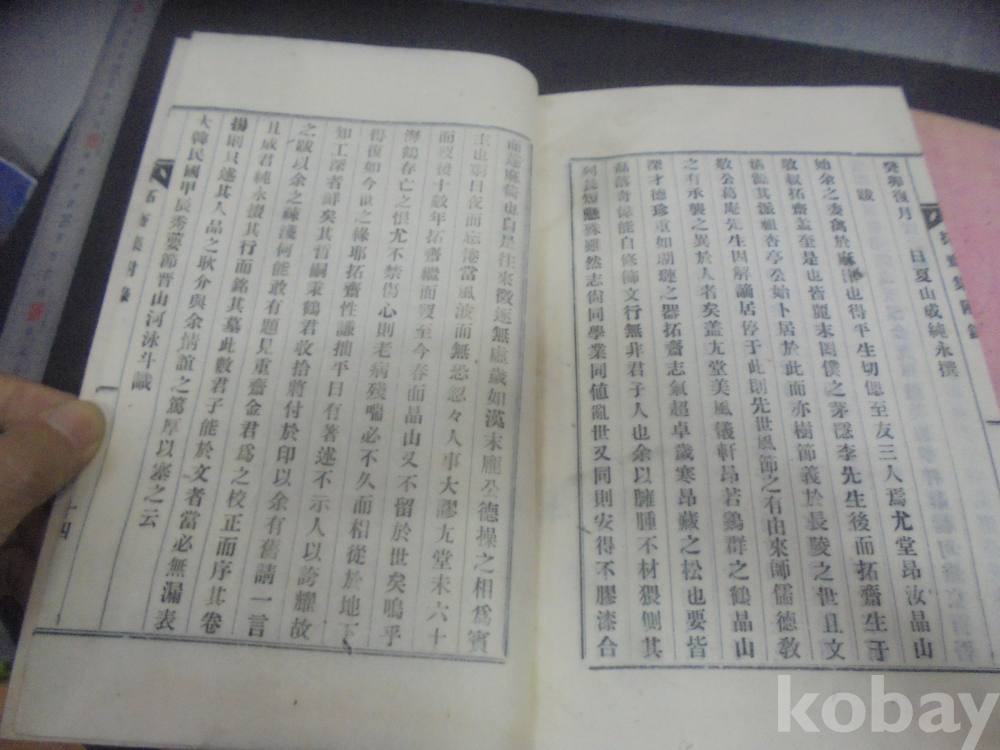 癸卯復月　日夏山成純永撰
跋
始余之委禽於麻湖也得平生切偲至友三人焉尤堂昂汝晶山
敬叔拓齋是也皆麗末罔僕之茅隱李先生後而拓齋生于
其派祖杏亭公始卜居於此而亦樹節義於長陵之世且文
敬公葛庵先生因解謫居停于此則先世風節之有由來師儒德教
之有承襲之異於人者矣盖尤堂美風儀軒昂若鷄群之鶴晶山
深才德珍重如瑚璉之器拓齋志氣超卓歲寒昂藏之松也要皆
磊落奇偉能自修飾文行無非君子人也余以臃腫不材猥側其
列長短雖殊趣然志尙同學業同値亂世又同則安得不膠漆合
而蓬麻倚也自是往來徵逐無虛歲如漢末龐公德操之相爲賓
主也窮日夜而忘倦當風波而無恐忽々人事大謬尤堂未六十
而歿後十數年拓齋繼而歿至今春而晶山又不留於世矣嗚乎
海鶴春亡之恨尤不禁傷心則老病殘喘必不久而相從於地下
得復如今世之緣耶拓齋性謙拙平日有著述不示人以誇耀故
知工深者鮮矣其胤嗣秉鶴君收拾將付於印以余有舊請一言
之跋以余之謏淺何能敢有題見重齋金君爲之校正而序其卷
且成君純永撰其行而銘其墓此數君子能於文者當必無漏表
揚則只述其人品之耿介與余情誼之篤厚以塞之云
大韓民國甲辰秀葽節晋山河泳斗識
拓齋集附錄
十四
kobay